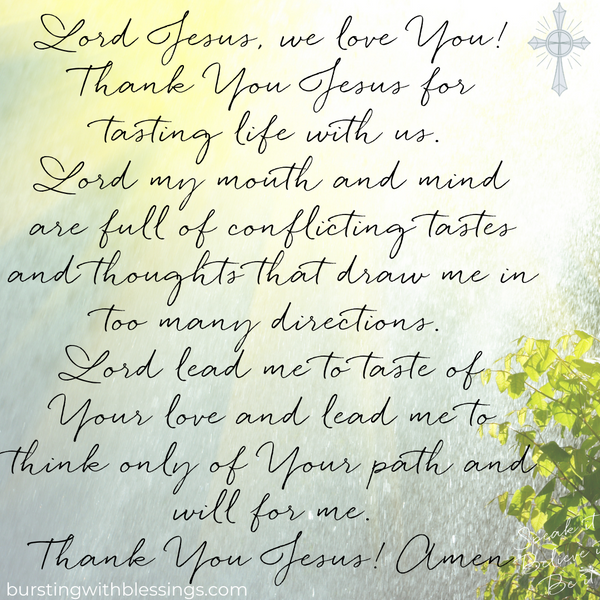 Lord Jesus, we love You!
Thank You Jesus for
tasting life with us.
Lord my mouth and mind
are full of conflicting tastes
and thoughts that draw me in
too many directions.
Lord lead me to taste of
Your love and lead me to
think only of Your path and
will for me.
Thank You Jesus! Amen
Speak it
Believe i
Be it
burstingwithblessings.com